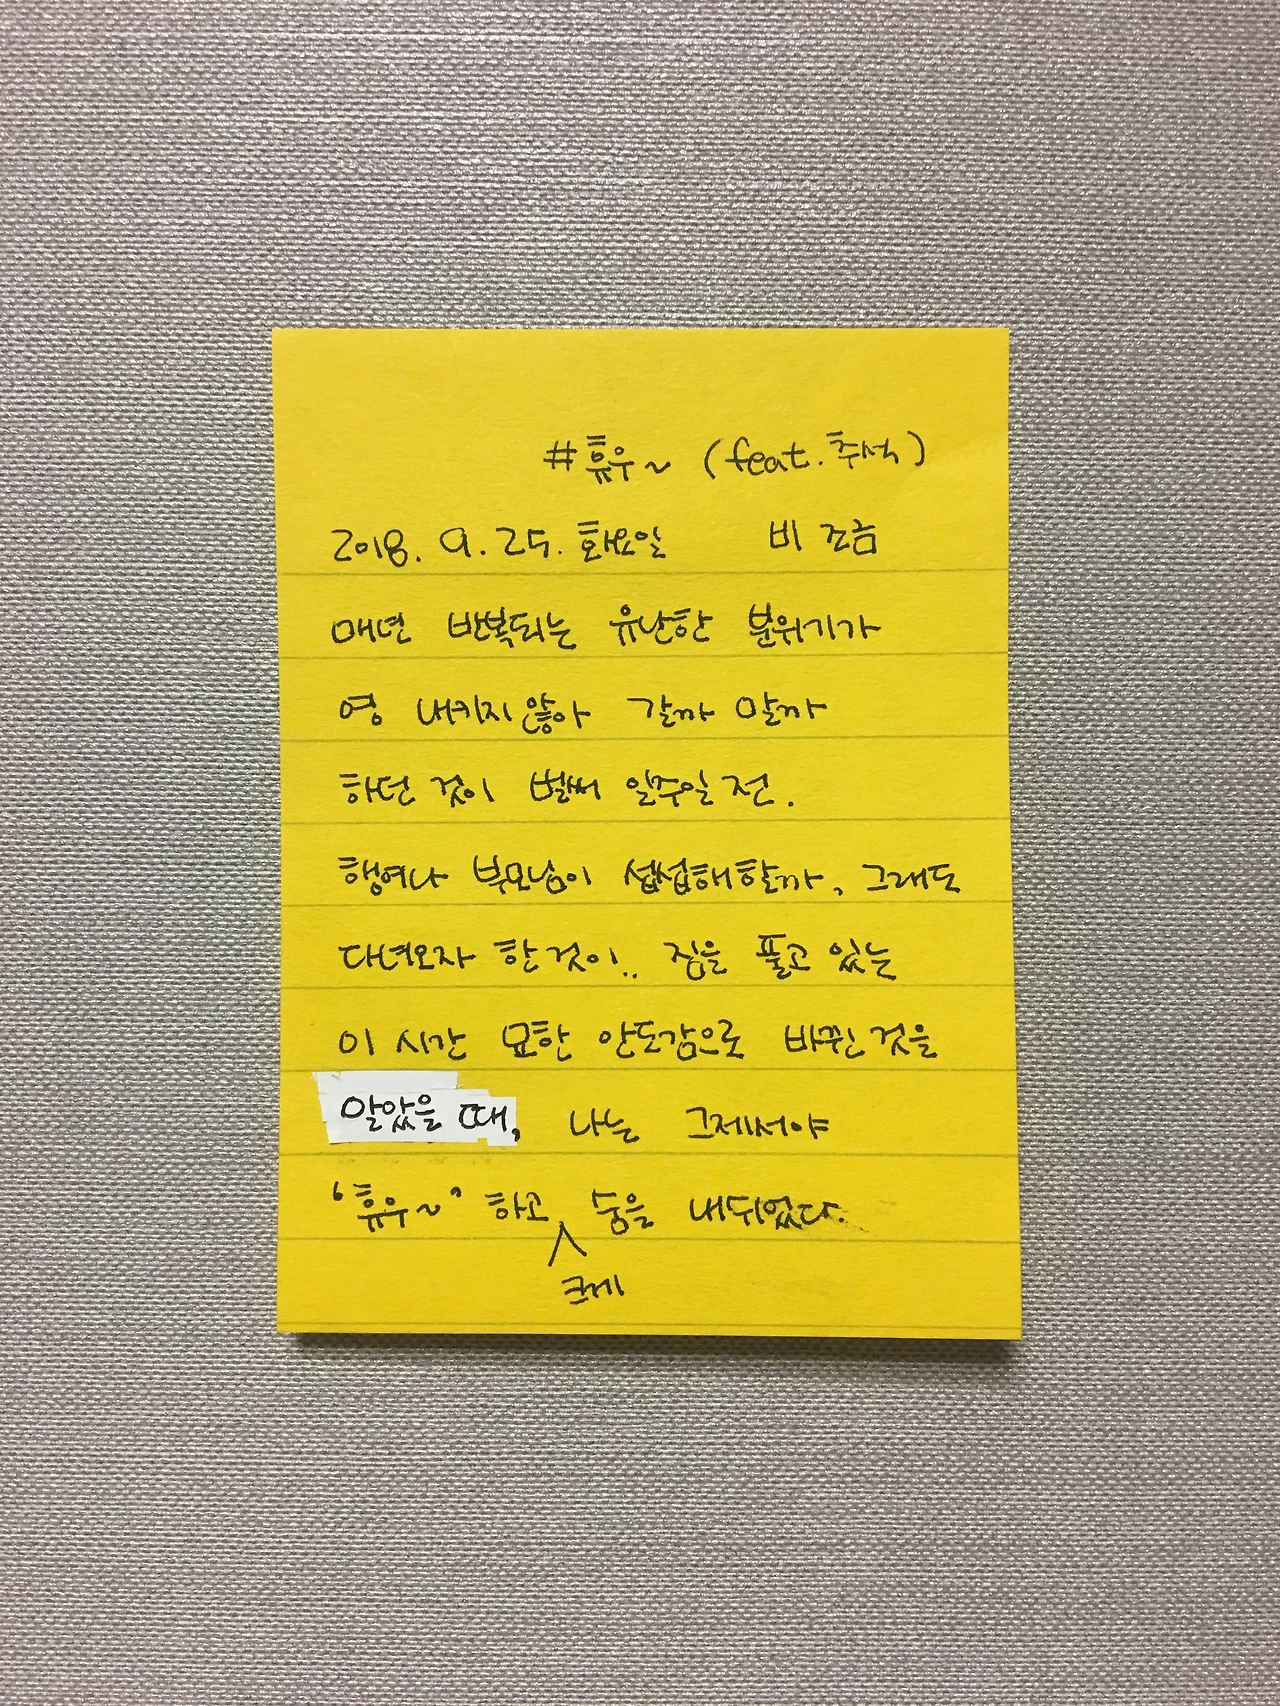 #휴우~ (feat.추석)
2018. 9. 25. 화요일 비 조금
매년 반복되는 유난한 분위기가
영 내키지 않아 갈까 말까
하던 것이 벌써 일주일 전.
행여나 부모님이 섭섭해할까, 그래도
다녀오자 한 것이.. 짐을 풀고 있는
이 시간 묘한 안도감으로 바뀐 것을
알았을 때, 나는 그제서야
“휴우~” 하고 숨을 내쉬었다.
크게